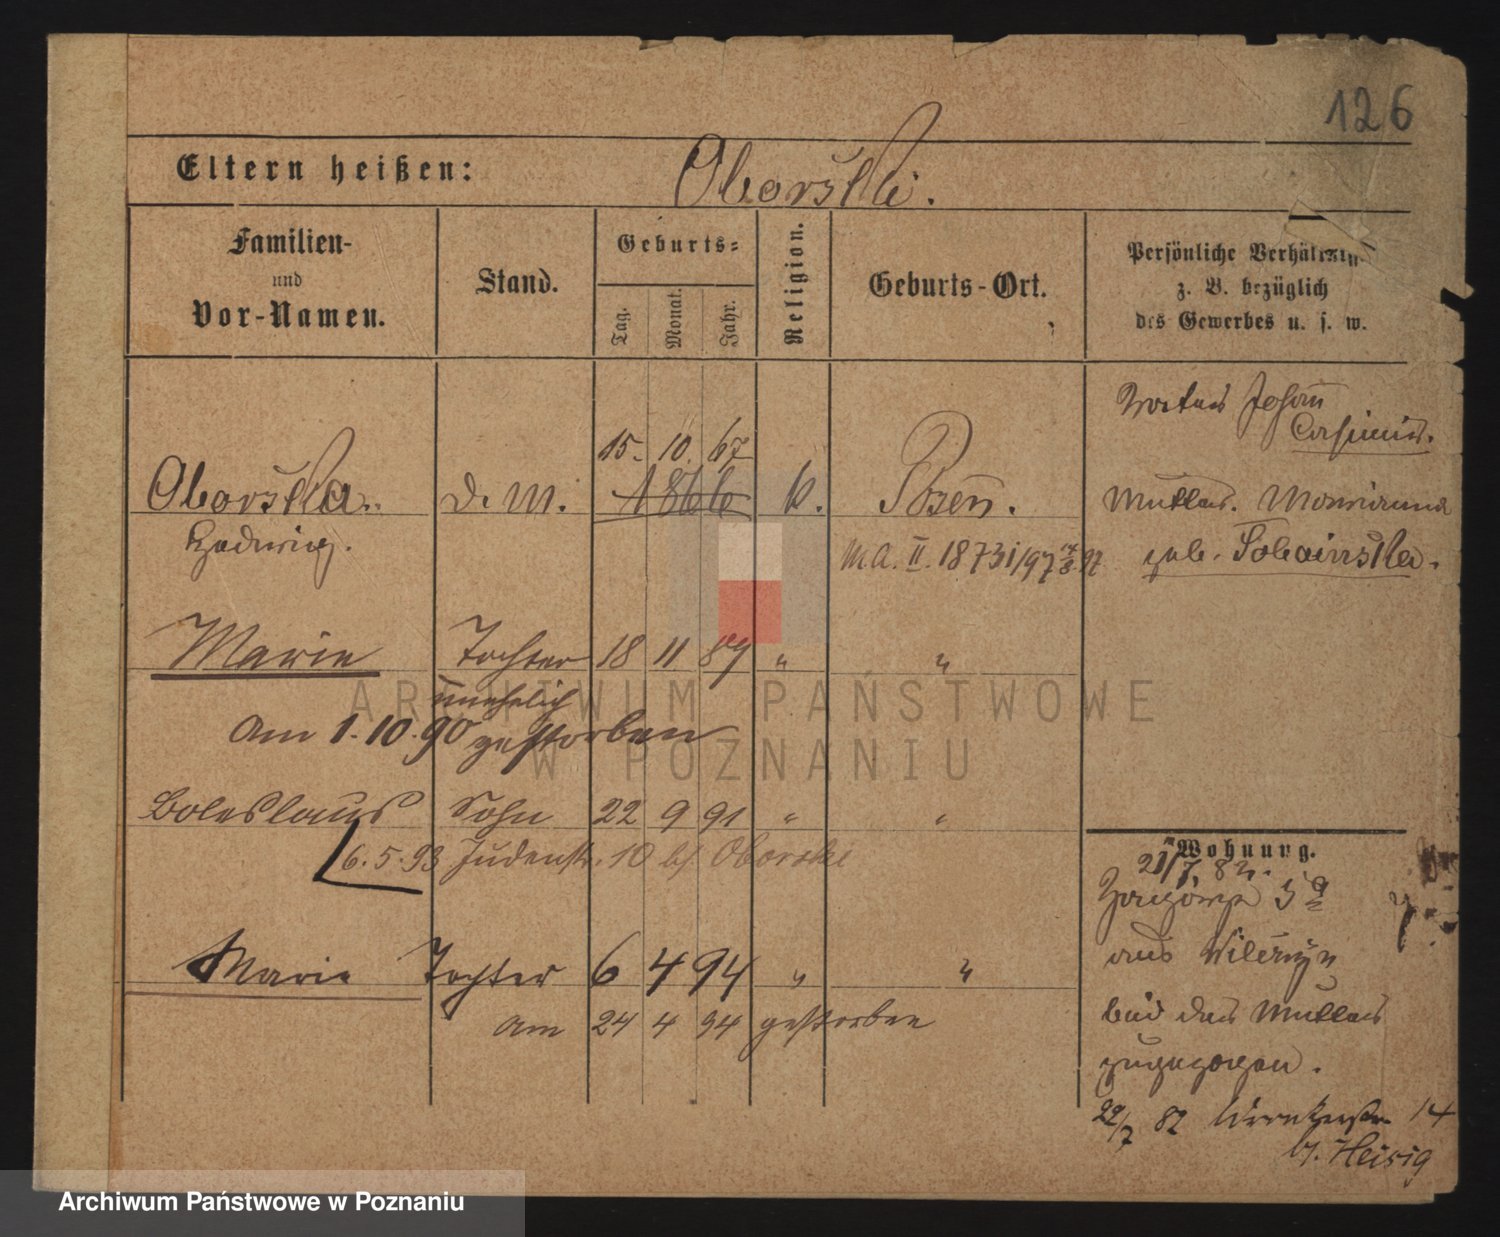 126
Eltern heißen: Oborski.
Familien-
und
Vor-Namen.
Stand.
Geburts-
Tag.
Monat.
Jahr.
Religion.
Geburts-Ort.
Persönliche Verhältniss
z. B. bezüglich
des Gewerbes u. s. w.
Vater Johann
Casimir.
15. 10. 67
Oborska. d. M. 1866 k. Posen.
Hedwig.
M.A. II. 1873
Mutter.
geb.
Marie Tochter 18 11 89 " "
unehelich
Am 1.10.90 gestorben
Boleslaus Sohn 22 9 91 " "
6.5.93 Judenstr. 10 bei Oborski
Marie Tochter 6 4 94 " "
am 24 4 94 gestorben
Wohnung.
21/7. 82.
aus
bei der Mutter
zugezogen.
22/7 82 14
bei Heisig
ARCHIWUM PAŃSTWOWE
W POZNANIU
Archiwum Państwowe w Poznaniu